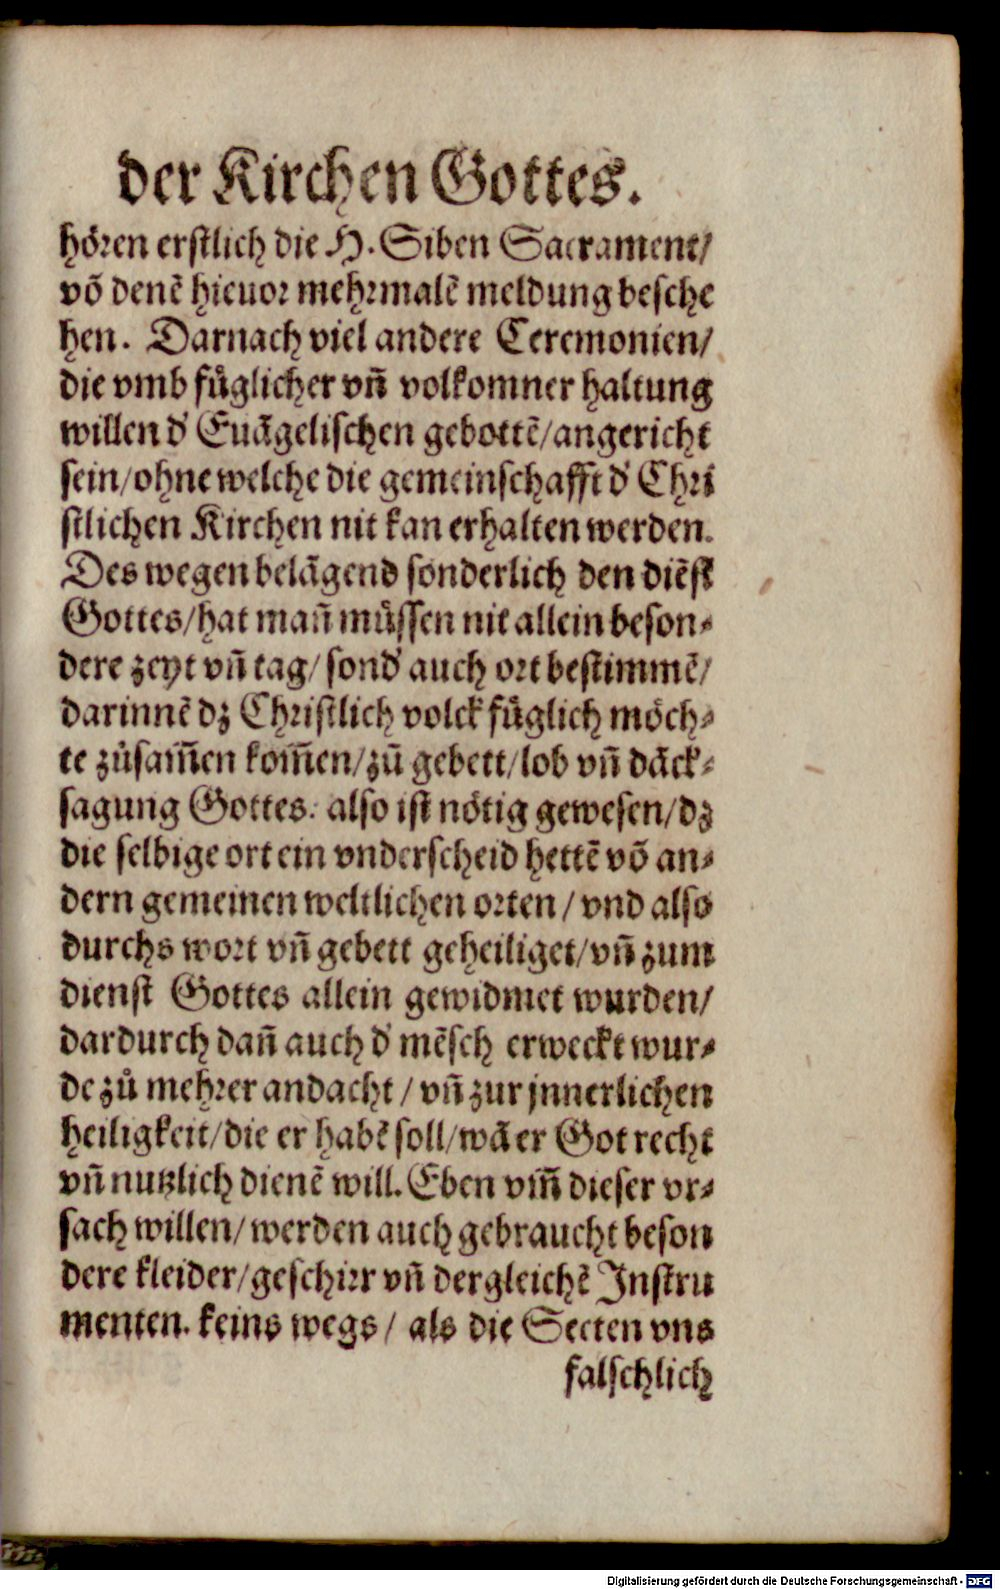 der Kirchen Gottes.
hören erstlich die H. Siben Sacrament/
võ denẽ hieuor mehrmalẽ meldung besche
hen. Darnach viel andere Ceremonien/
die vmb fůglicher vñ volkomner haltung
willen d' Euãgelischen gebottẽ/angericht
sein/ohne welche die gemeinschafft d' Chri
stlichen Kirchen nit kan erhalten werden.
Des wegen belãgend sonderlich den diẽst
Gottes/hat mañ můssen nit allein beson-
dere zeyt vñ tag/ sond' auch ort bestimmẽ/
darinnẽ dz Christlich volck fůglich möch-
te zůsam̃en kom̃en/zů gebett/lob vñ dãck-
sagung Gottes: also ist nötig gewesen/dz
die selbige ort ein vnderscheid hettẽ võ an-
dern gemeinen weltlichen orten / vnd also
durchs wort vñ gebett geheiliget/vñ zum
dienst Gottes allein gewidmet wurden/
dardurch dañ auch d' mẽsch erweckt wur-
de zů mehrer andacht / vñ zur jnnerlichen
heiligkeit/die er habẽ soll/wã er Got recht
vñ nutzlich dienẽ will. Eben vm̃ dieser vr-
sach willen/ werden auch gebraucht beson
dere kleider/geschirr vñ dergleichẽ Instru
menten. keins wegs / als die Secten vns
falschlich
Digitalisierung gefördert durch die Deutsche Forschungsgemeinschaft - DFG